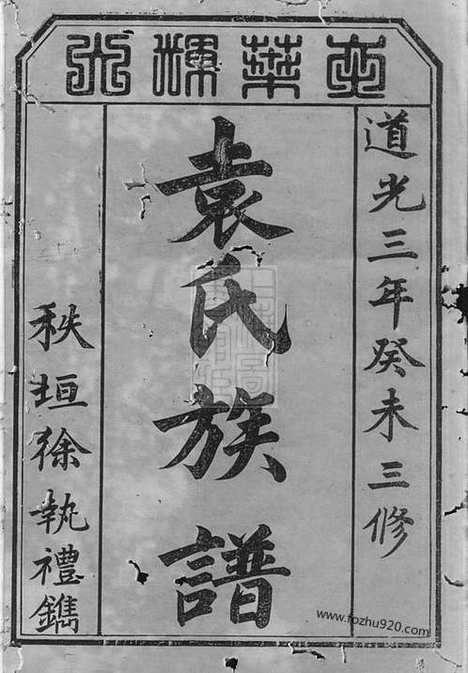 葉輝光
道光三年癸未三修
袁氏族譜
秩垣徐執禮鐫
www.fozhu920.com